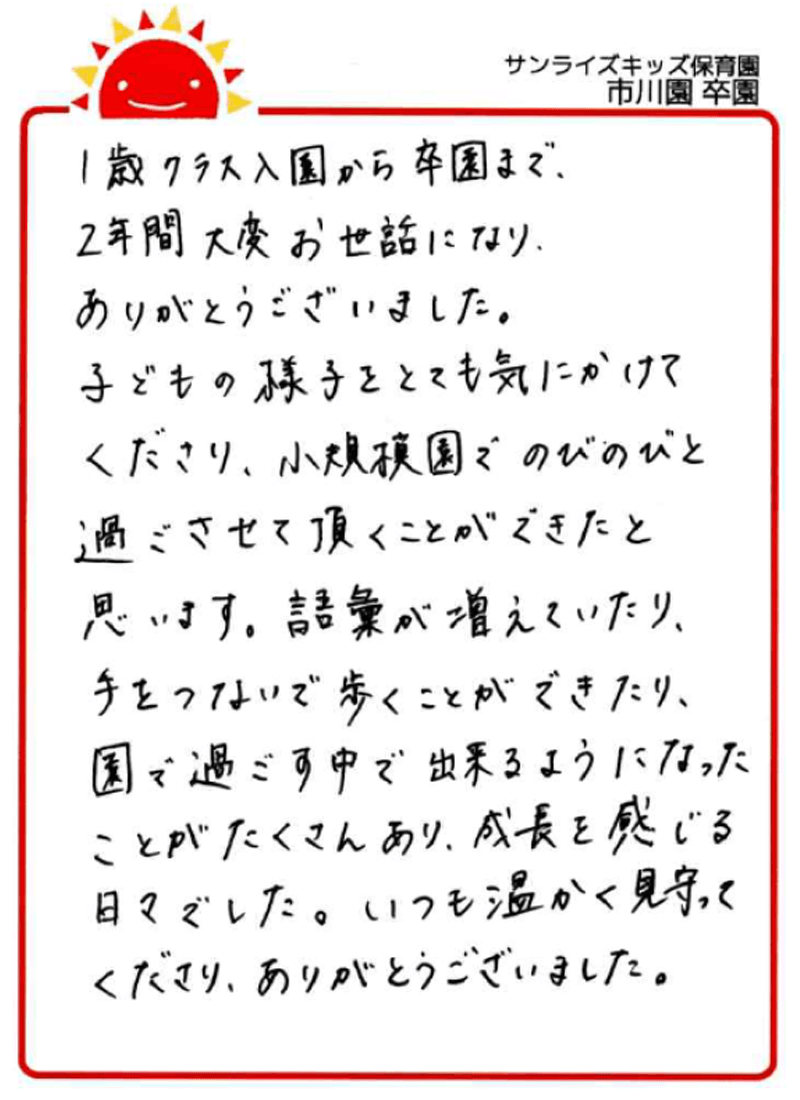 サンライズキッズ保育園
市川園 卒園
1歳クラス入園から卒園まで、
2年間大変お世話になり、
ありがとうございました。
子どもの様子をとても気にかけて
くださり、小規模園でのびのびと
過ごさせて頂くことができたと
思います。語彙が増えていたり、
手をつないで歩くことができたり、
園で過ごす中で出来るようになった
ことがたくさんあり、成長を感じる
日々でした。いつも温かく見守って
くださり、ありがとうございました。